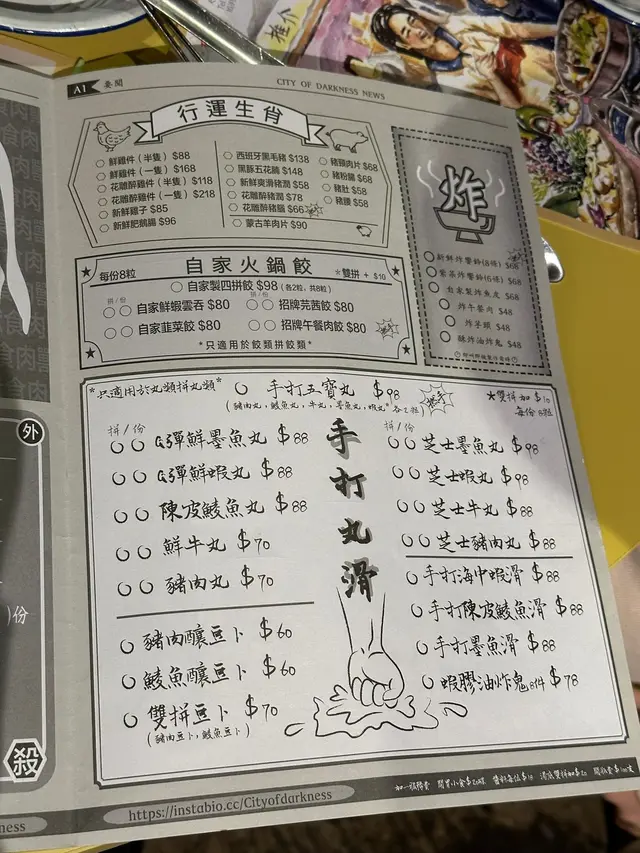 推介
A1 要聞
CITY OF DARKNESS NEWS
行運生肖
鮮雞件（半隻）$88
鮮雞件（一隻）$168
花雕醉雞件（半隻）$118
花雕醉雞件（一隻）$218
新鮮雞子 $85
新鮮肥鵝腸 $96
西班牙黑毛豬 $138
黑豚五花腩 $148
新鮮爽滑豬潤 $58
花雕醉豬潤 $78
花雕醉豬腦 $66
蒙古羊肉片 $90
豬頸肉片 $68
豬粉腸 $68
豬肚 $58
豬腰 $58
炸
新鮮炸響鈴(8條) $68
紫菜炸響鈴(6條) $68
自家製炸魚皮 $68
炸午餐肉 $48
炸芋頭 $48
酥炸油炸鬼 $48
每份8粒
自家火鍋餃
*雙拼 + $10
自家製四拼餃 $98 (各2粒，共8粒)
拼/份
拼/份
自家鮮蝦雲吞 $80
招牌芫茜餃 $80
自家韮菜餃 $80
招牌午餐肉餃 $80
*只適用於餃類拼餃類*
*只適用於丸類拼丸類*
手打五寶丸 $98
(豬肉丸，鯪魚丸，牛丸，墨魚丸，蝦丸*各2粒)
★雙拼加$10
每份8粒
手打丸滑
拼/份
Q彈鮮墨魚丸 $88
Q彈鮮蝦丸 $88
陳皮鯪魚丸 $88
鮮牛丸 $70
豬肉丸 $70
豬肉釀豆卜 $60
鯪魚釀豆卜 $60
雙拼豆卜 $70
(豬肉豆卜，鯪魚豆卜)
拼/份
芝士墨魚丸 $98
芝士蝦丸 $98
芝士牛丸 $88
芝士豬肉丸 $88
手打海中蝦滑 $88
手打陳皮鯪魚滑 $88
手打墨魚滑 $88
蝦膠油炸鬼 8件 $78
外
)份
殺
https://instabio.cc/Cityofdarkness
加一服務費
ness